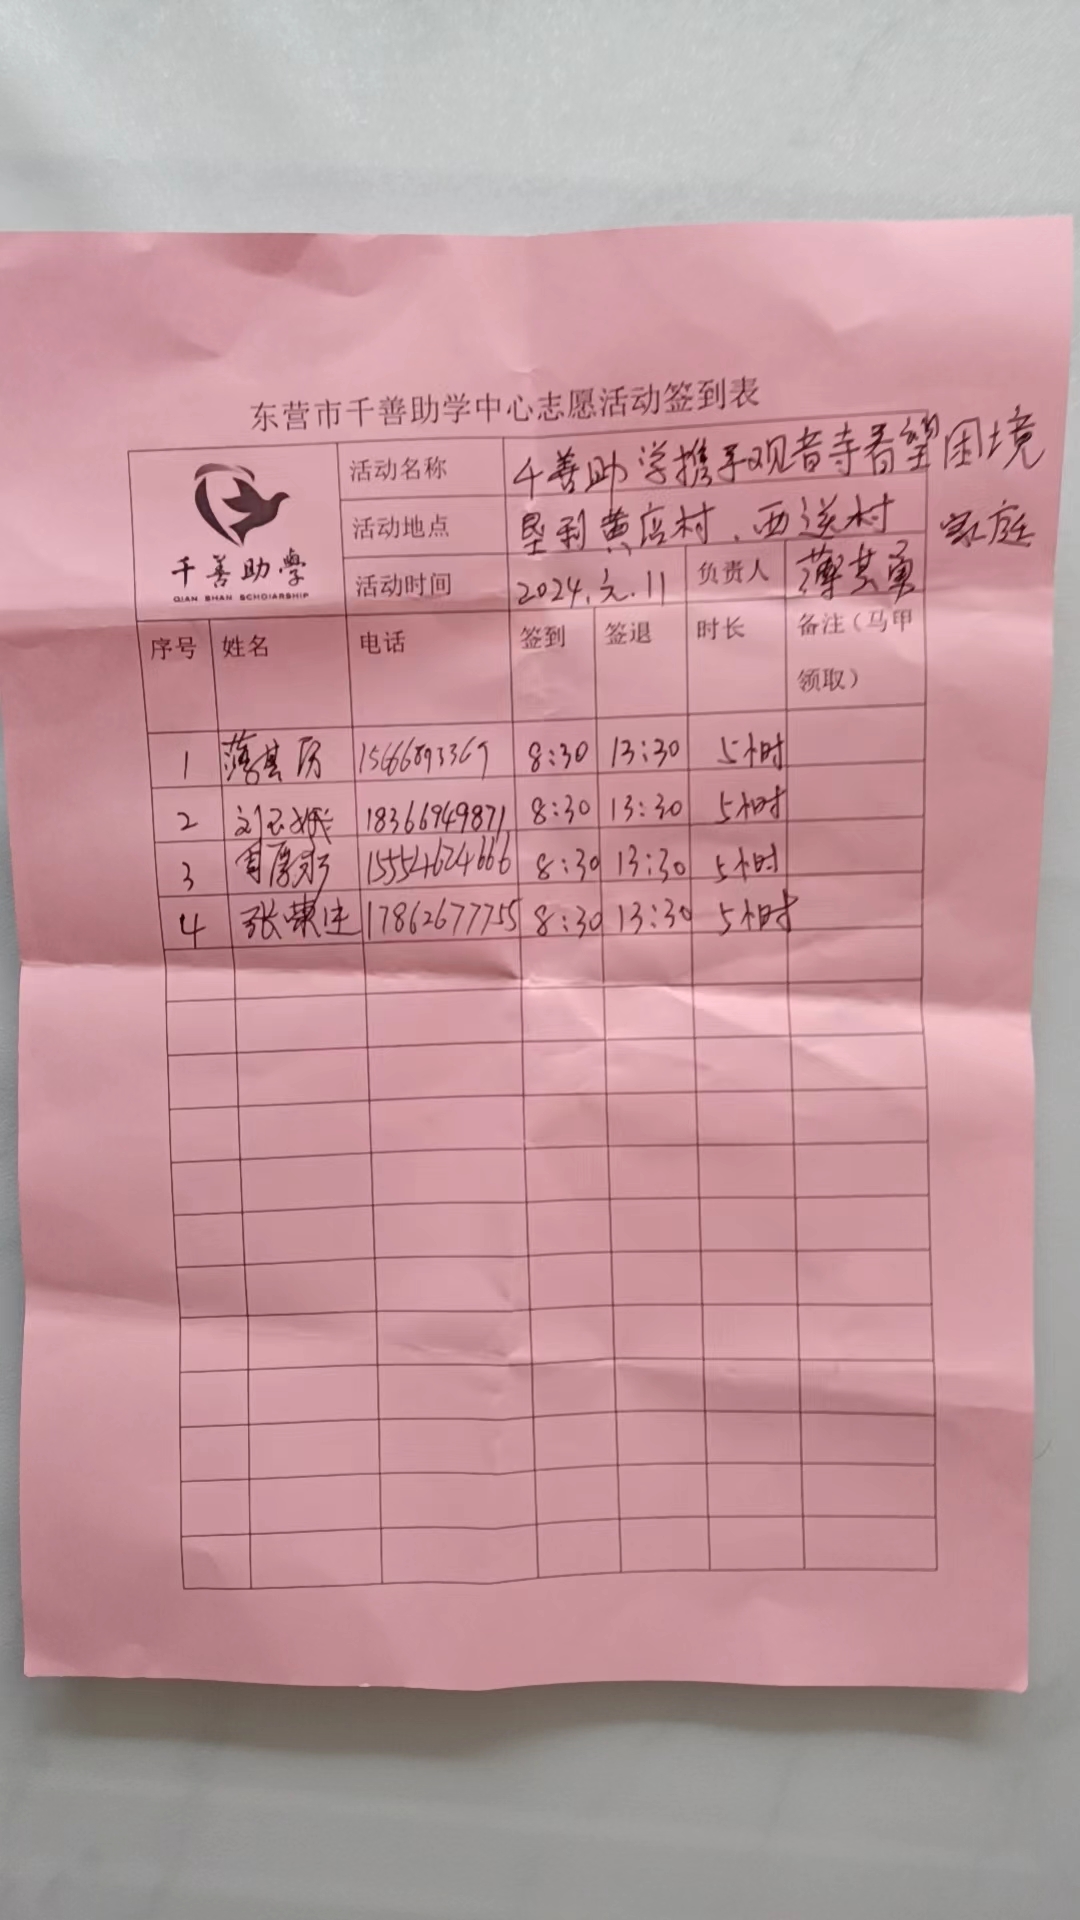 东营市千善助学中心志愿活动签到表
千善助學
QIAN SHAN SCHOLARSHIP
活动名称 千善助学携手观音寺看望困境家庭
活动地点 垦利黄店村、西送村
活动时间 2024.元.11 负责人 薄其勇
序号 姓名 电话 签到 签退 时长 备注（马甲领取）
1 薄其 15666893369 8:30 13:30 5小时
2 刘玉 18366949871 8:30 13:30 5小时
3 15554624666 8:30 13:30 5小时
4 张荣 17862677755 8:30 13:30 5小时